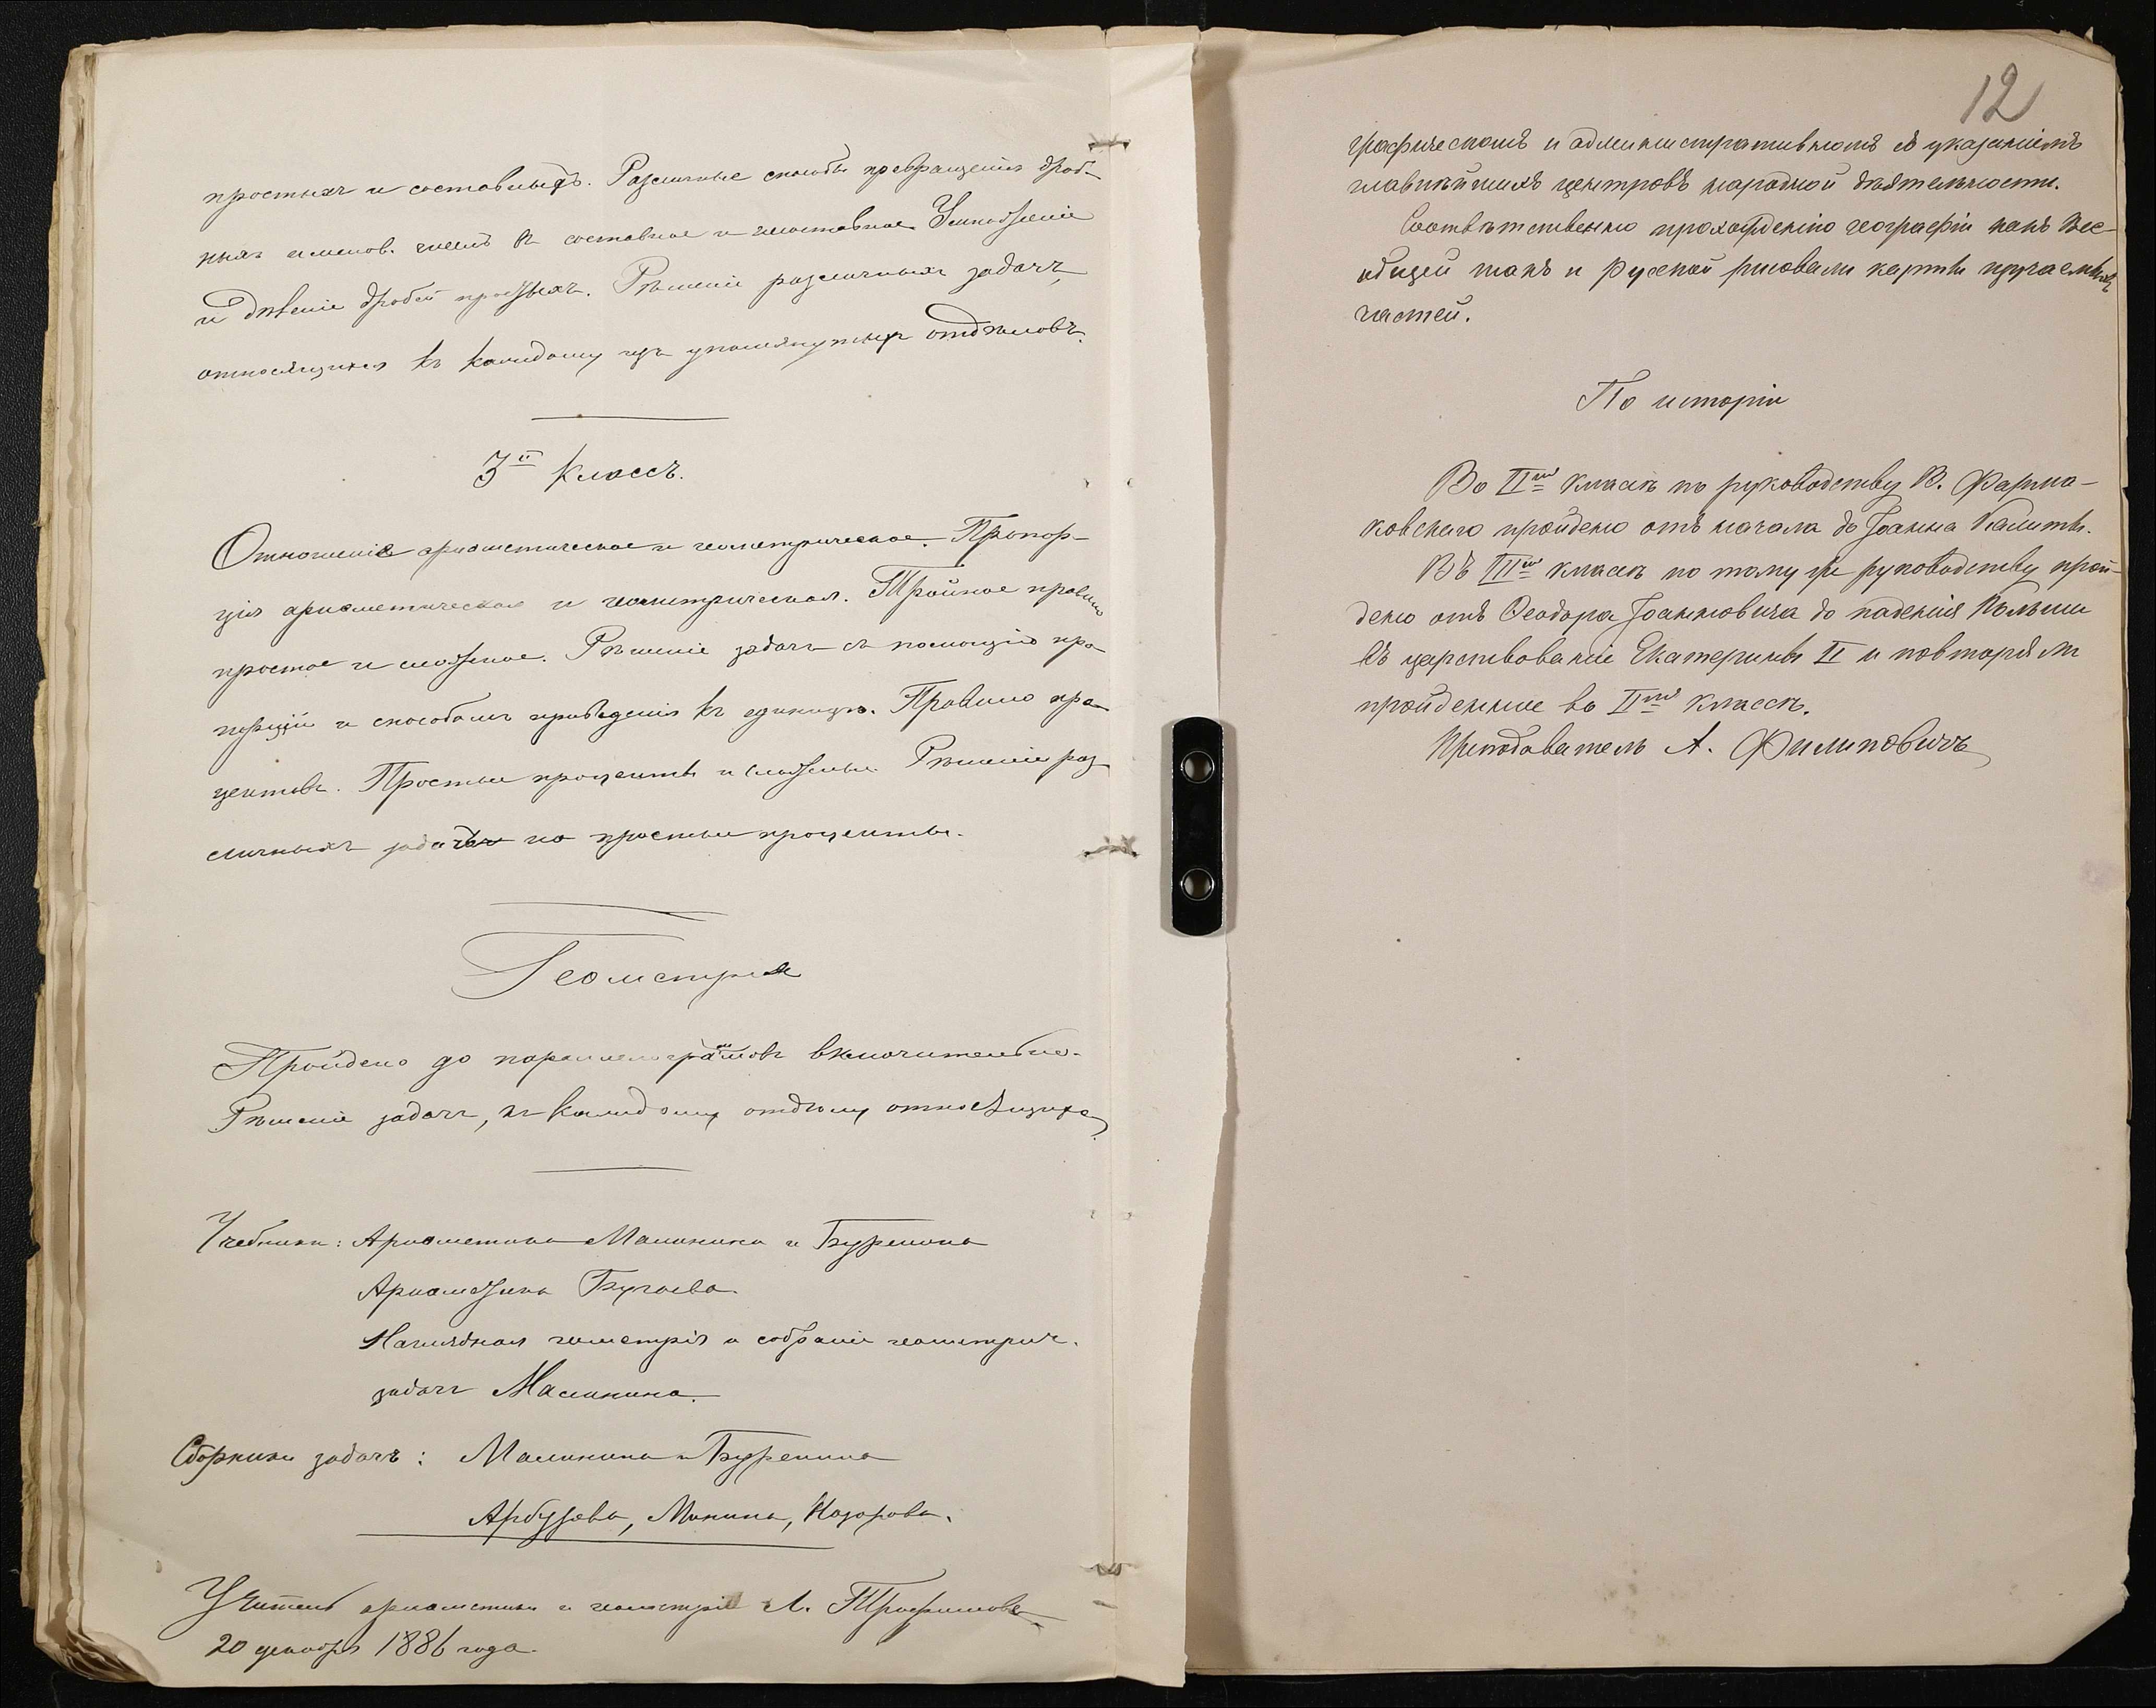 простыхъ и составныхъ. Различные способы превращенія дроб-
ныхъ именов. чиселъ въ составное и несоставное Умноженіе
и дѣленіе дробей простыхъ. Рѣшеніе различныхъ задачъ,
относящихся къ каждому изъ упомянутыхъ отдѣловъ.
3й классъ.
Отношеніе ариѳметическое и геометрическое. Пропор-
ція ариѳметическая и геометрическая. Тройное правило
простое и сложное. Рѣшеніе задачъ съ помощію про-
порцій и способомъ приведенія къ единицѣ. Правило про-
центовъ. Простые проценты и сложные. Рѣшеніе раз-
личныхъ задачъ на простые проценты.
Геометрія
Пройдено до параллелограммовъ включительно.
Рѣшеніе задачъ, къ каждому отдѣлу относящихся.
Учебники: Ариѳметика Малинина и Буренина
Ариѳметика Бугаева.
Наглядная геометрія и собраніе геометрич.
задачъ Малинина.
Сборники задачъ: Малинина и Буренина
Арбузова, Минина, Назарова.
Учитель ариѳметики и геометріи А. Трофимовъ
20 декабря 1886 года.
12
графическомъ и административномъ съ указаніемъ
главнѣйшихъ центровъ народной дѣятельности.
Соотвѣтственно прохожденію географіи какъ Все-
общей такъ и Русской рисовали карты изучаемыхъ
частей.
По исторіи
Во IIмъ классѣ по руководству В. Фарма-
ковскаго пройдено отъ начала до Іоанна Калиты.
Въ IIIмъ классѣ по тому же руководству прой-
дено отъ Ѳеодора Іоанновича до паденія Польши
въ царствованіе Екатерины II и повторялъ
пройденное во IIмъ классѣ.
Преподаватель А. Филиповичъ